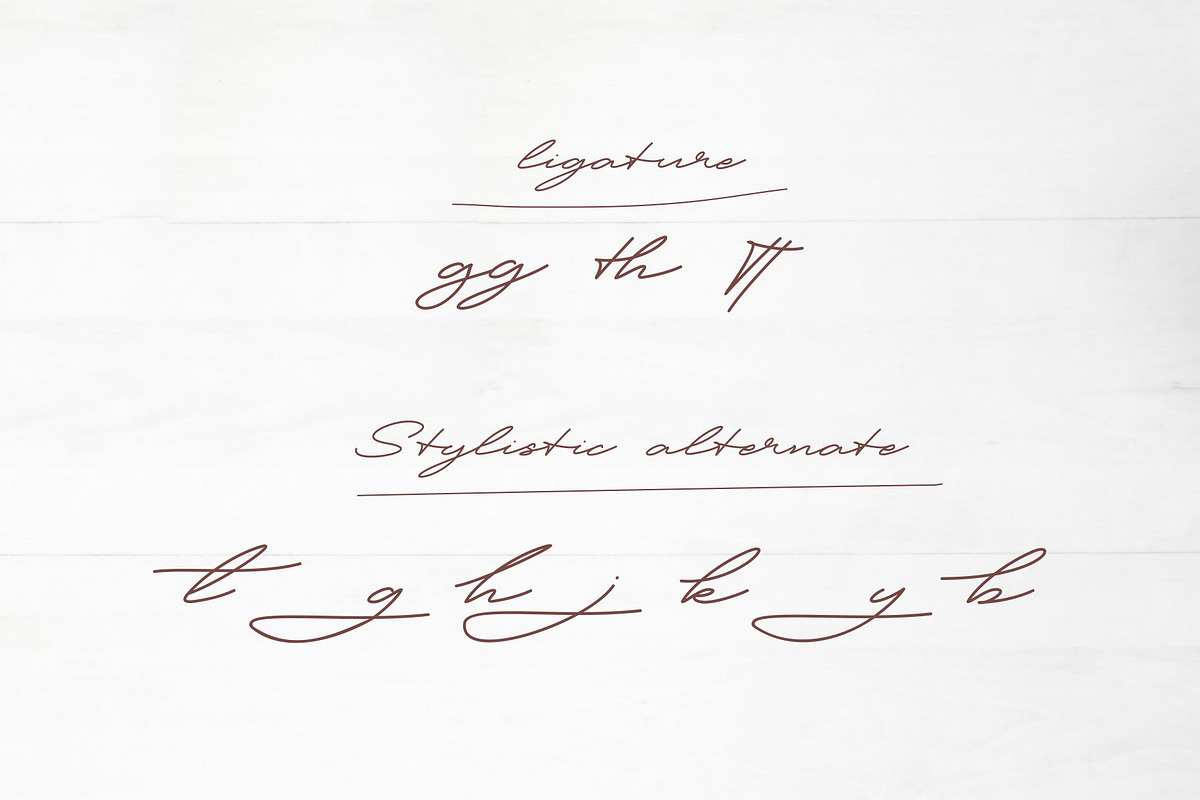 ligature
gg th
Stylistic alternate
t g h j k y b